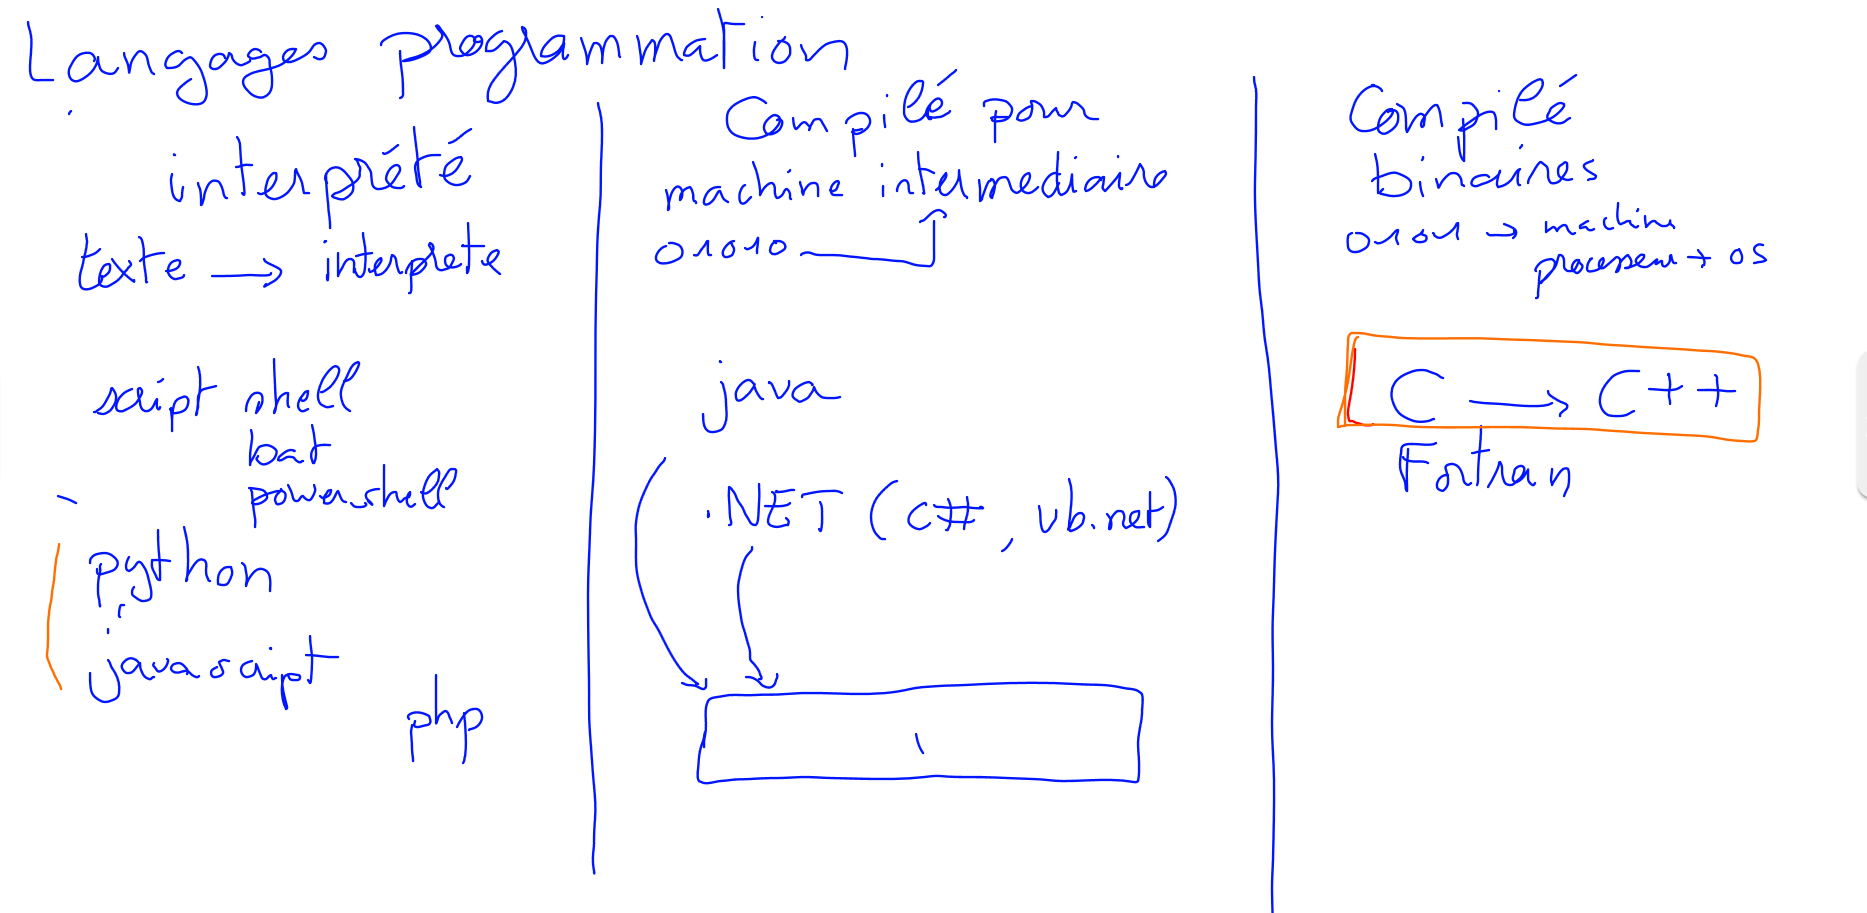 Langages programmation
interprété
texte → interprete
script shell
bat
powershell
python
javascript
php
Compilé pour
machine intermediaire
01010
java
.NET (C#, vb.net)
Compilé
binaires
0101 → machine
processeur + OS
C → C++
Fortran